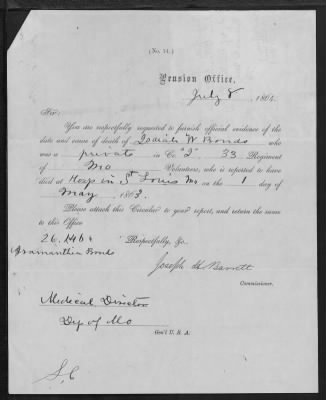 (No. 11.)
Pension Office,
July 8, 1864.
Sir:
You are respectfully requested to furnish official evidence of the
date and cause of death of Josiah W Bonds who
was a private in Co. "I" 33 Regiment
of Mo Volunteers, who is reported to have
died at Hosp in St Louis Mo on the 1 day of
May, 1863.
Please attach this Circular to your report, and return the same
to this Office
26.146 Respectfully, &c.
Aramanthia Bonds
Joseph H Barrett
Commissioner.
Medical Director
Dep of Mo
Gen'l U. S. A.